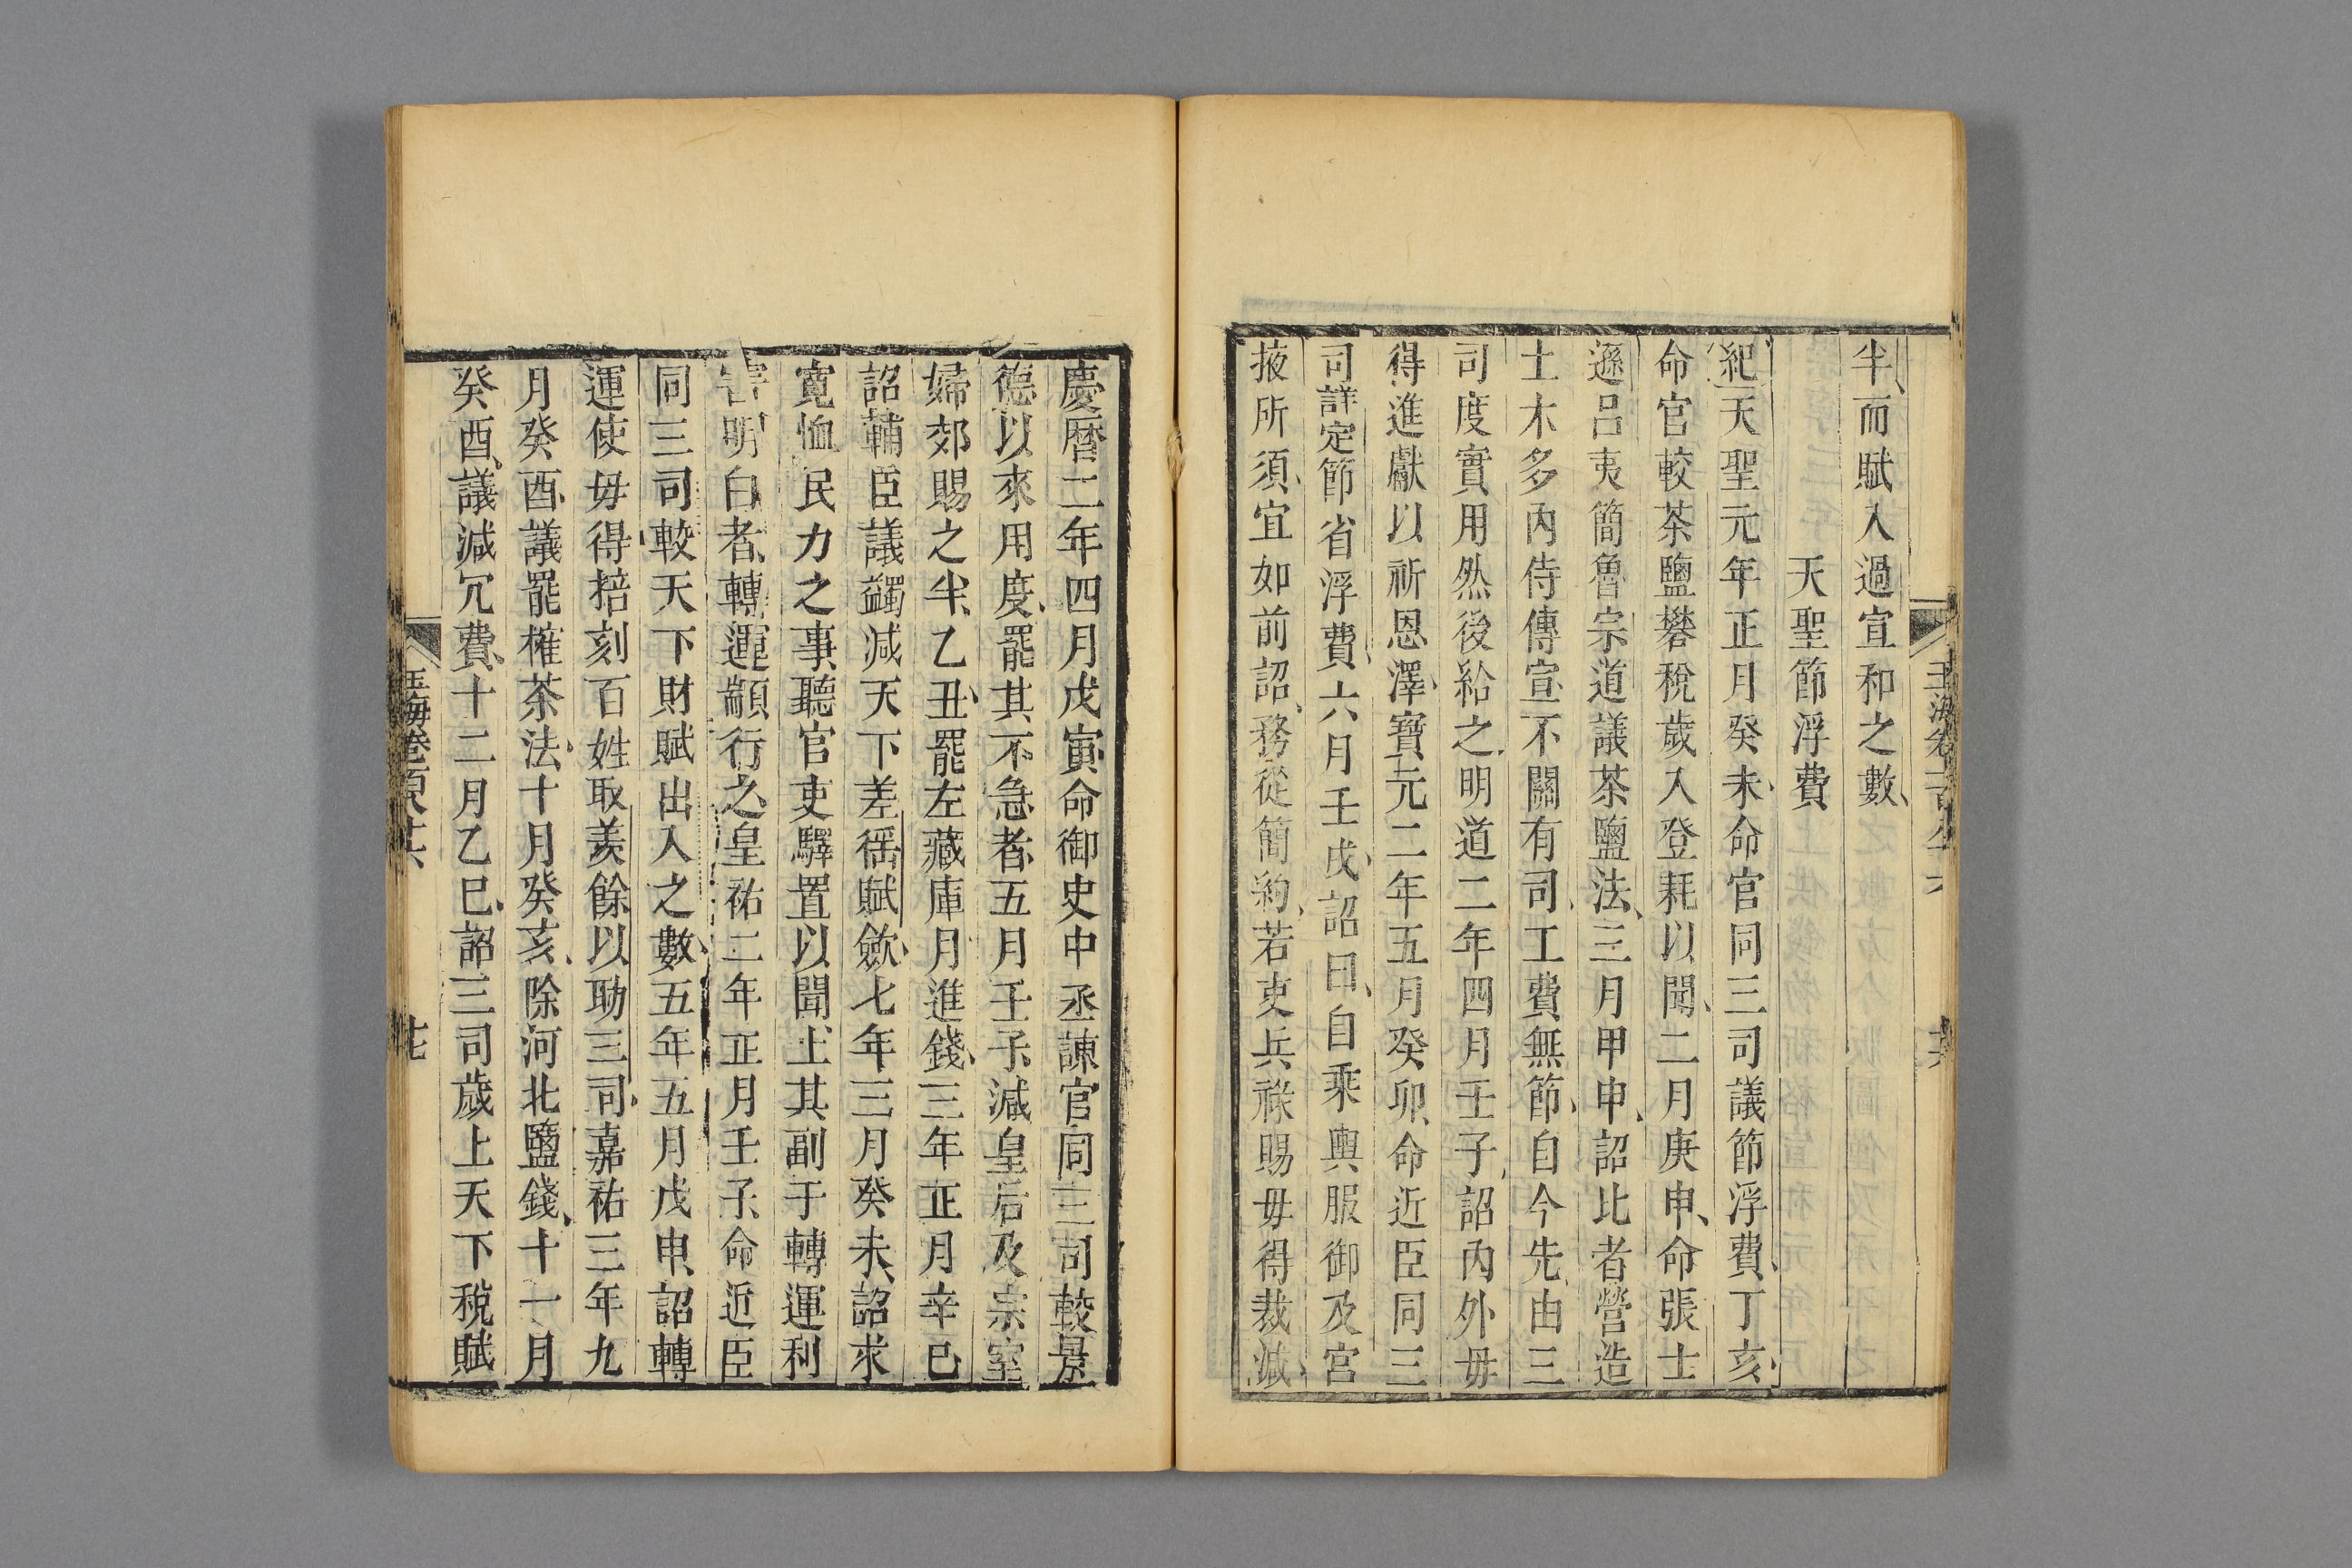 半而賦入過宣和之數
天聖節浮費
紀天聖元年正月癸未命官同三司議節浮費丁亥
命官較茶鹽礬稅歲入登耗以聞二月庚申命張士
遜呂夷簡魯宗道議茶鹽法三月甲申詔比者營造
土木多內侍傳宣不關有司工費無節自今先由三
司度實用然後給之明道二年四月壬子詔內外毋
得進獻以祈恩澤寶元二年五月癸卯命近臣同三
司詳定節省浮費六月壬戌詔曰自乘輿服御及宮
掖所須宜如前詔務從簡約若吏兵祿賜毋得裁減
慶曆二年四月戊寅命御史中丞諫官同三司較景
德以來用度罷其不急者五月壬子減皇后及宗室
婦郊賜之半乙丑罷左藏庫月進錢三年正月辛巳
詔輔臣議蠲減天下差徭賦歛七年三月癸未詔求
寬恤民力之事聽官吏驛置以聞上其副于轉運利
害明白者轉運顓行之皇祐二年正月壬子命近臣
同三司較天下財賦出入之數五年五月戊申詔轉
運使毋得掊刻百姓取羨餘以助三司嘉祐三年九
月癸酉議罷榷茶法十月癸亥除河北鹽錢十一月
癸酉議減冗費十二月乙巳詔三司歲上天下稅賦